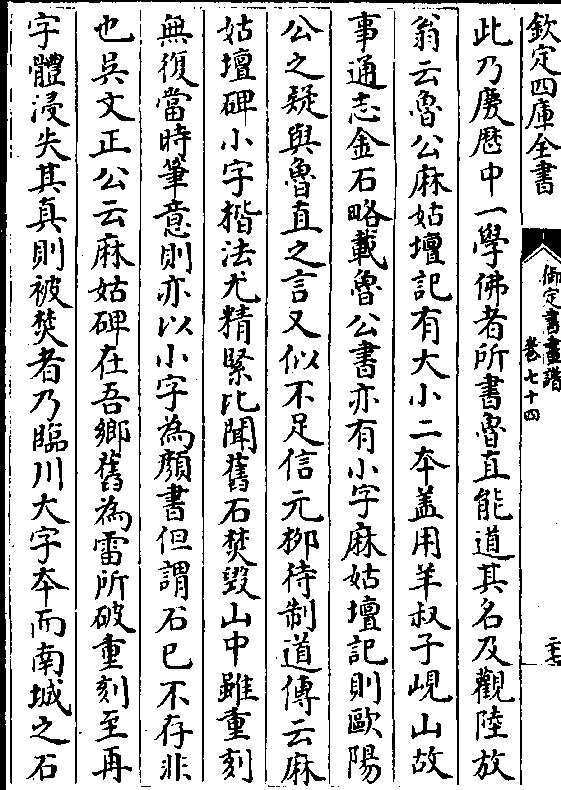 欽定四庫全書
御定書畫譜
卷七十四
二十七
此乃慶歴中一學佛者所書魯直能道其名及觀陸放
翁云魯公麻姑壇記有大小二本盖用羊叔子峴山故
事通志金石略載魯公書亦有小字麻姑壇記則歐陽
公之疑與魯直之言又似不足信元桞待制道傳云麻
姑壇碑小字楷法尤精緊比聞舊石焚毀山中雖重刻
無復當時筆意則亦以小字為顔書但謂石已不存非
也吳文正公云麻姑碑在吾鄉舊為雷所破重刻至再
字體浸失其真則被焚者乃臨川大字本而南城之石